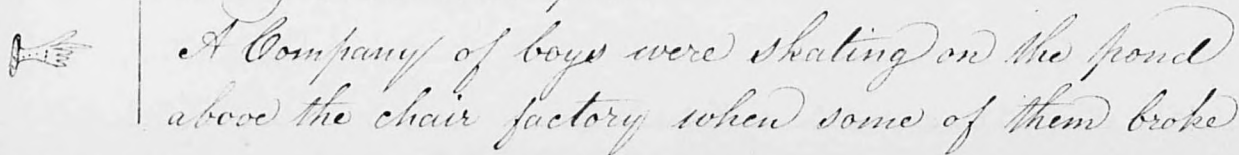 A Company of boys were skating on the pond
above the chair factory when some of them broke